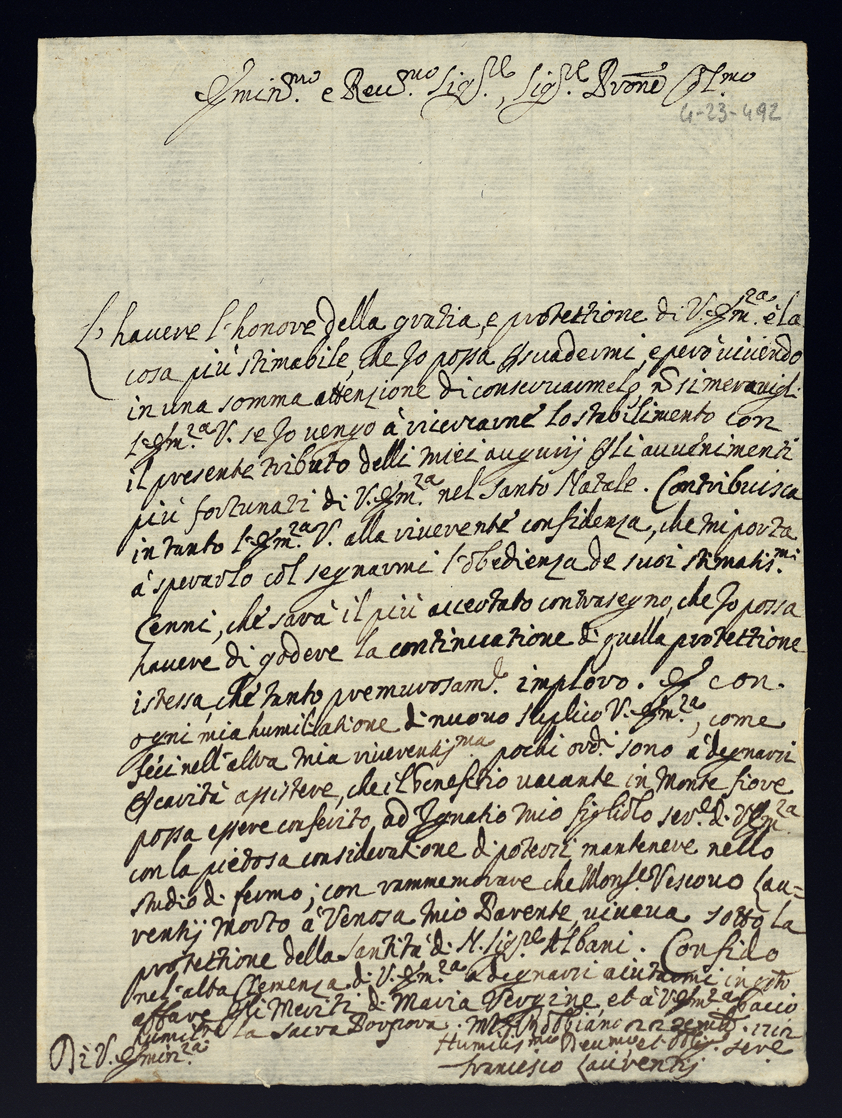 Emin.mo e Rev.mo Sig.re, Sig.re Prone Col.mo
4-23-492
L'havere l'honore della gratia, e protettione di V. Em.za è la
cosa più stimabile, che Io possa p̱suadermi, e però vivendo
in una somma attenzione di conservarmelo, nõ si meravigli
l'Em.za V. se Io vengo à ricercarne lo stabilimento con
il presente tributo delli miei augurij p̱ gli avvenimenti
più fortunati di V. Em.za nel Santo Natale. Contribuisca
in tanto l'Em.za V. alla riverente confidenza, che mi porta
à sperarlo col segnarmi l'obedienza de suoi stimatis.mi
Cenni, che sarà il più accertato contrasegno, che Io possa
havere di godere la continuatione di quella protettione
istessa, che tanto premurosam.te imploro. Et con
ogni mia humiliatione di nuovo suplico V. Em.za, come
feci nell'altra mia riverentis.ma pochi ord.ri sono à degnarsi
p̱ carità assistere, che il benefitio vacante in Monte fiore
possa essere conferito ad Ignatio mio figliolo ser.re di V. Em.za
con la pietosa consideratione di poterli mantenere nello
studio di fermo; con rammemorare che Mons.re Vescovo Lau=
rentij morto à Venosa mio Parente, viveva sotto la
protettione della Santità di N. Sig.re Albani. Confido
nell'alta Clemenza di V. Em.za à degnarsi aiutarmi in q̃sto
affare p̱ li Meriti di Maria Vergine et à V. Em.za bacio
humilm.te la Sacra Porpora.
Di V. Emin.za
Humilis.mo Dev.mo et Oblig. Serv.e
Francesco Laurentij